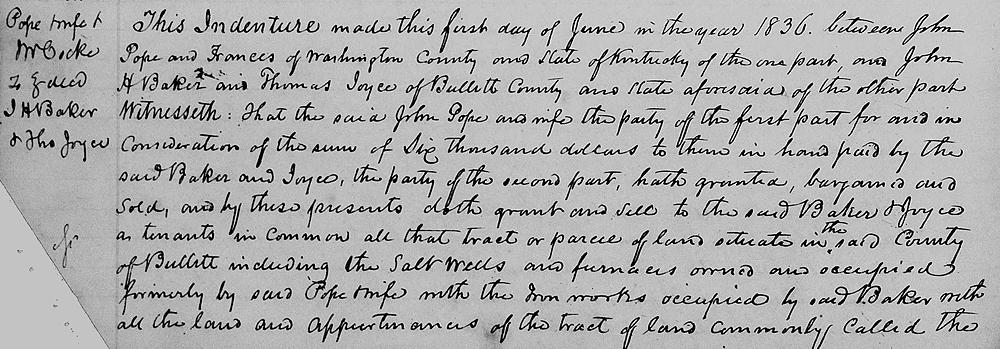 Pope & wife &
W Cocke
To } deed
J H Baker
& Tho Joyce
This Indenture made this first day of June in the year 1836. between John
Pope and Frances of Washington County and State of Kentucky of the one part, and John
H Baker and Thomas Joyce of Bullitt County and State aforesaid of the other part
Witnesseth: That the said John Pope and wife the party of the first part for and in
Consideration of the sum of Six thousand dollars to them in hand paid by the
said Baker and Joyce, the party of the second part, hath granted, bargained and
Sold, and by these presents doth grant and sell to the said Baker & Joyce
as tenants in Common all that tract or parcel of land situate in the said County
of Bullitt including the Salt Wells and furnaces owned and occupied
formerly by said Pope & wife with the Iron works occupied by said Baker with
all the land and appurtinances of the tract of land commonly called the